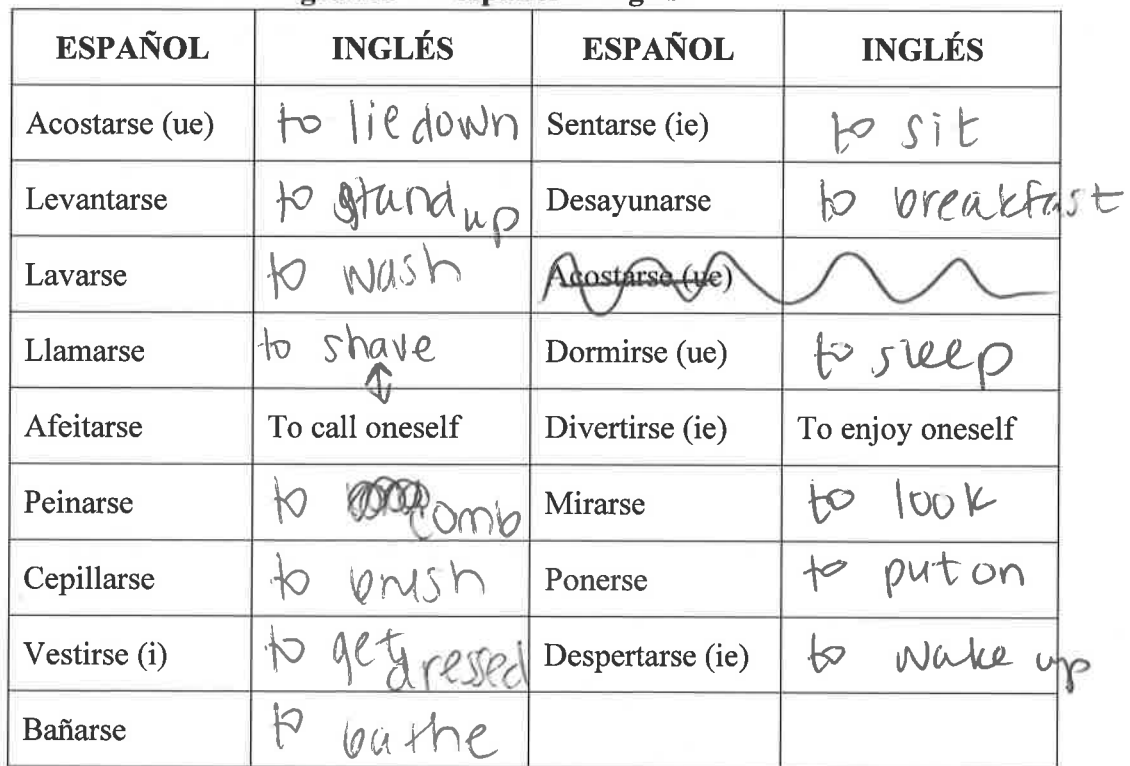 ESPAÑOL INGLÉS ESPAÑOL INGLÉS
Acostarse (ue) to lie down Sentarse (ie) to sit
Levantarse to stand up Desayunarse to breakfast
Lavarse to wash Acostarse (ue)
Llamarse to shave Dormirse (ue) to sleep
Afeitarse To call oneself Divertirse (ie) To enjoy oneself
Peinarse to comb Mirarse to look
Cepillarse to brush Ponerse to put on
Vestirse (i) to get dressed Despertarse (ie) to wake up
Bañarse to bathe